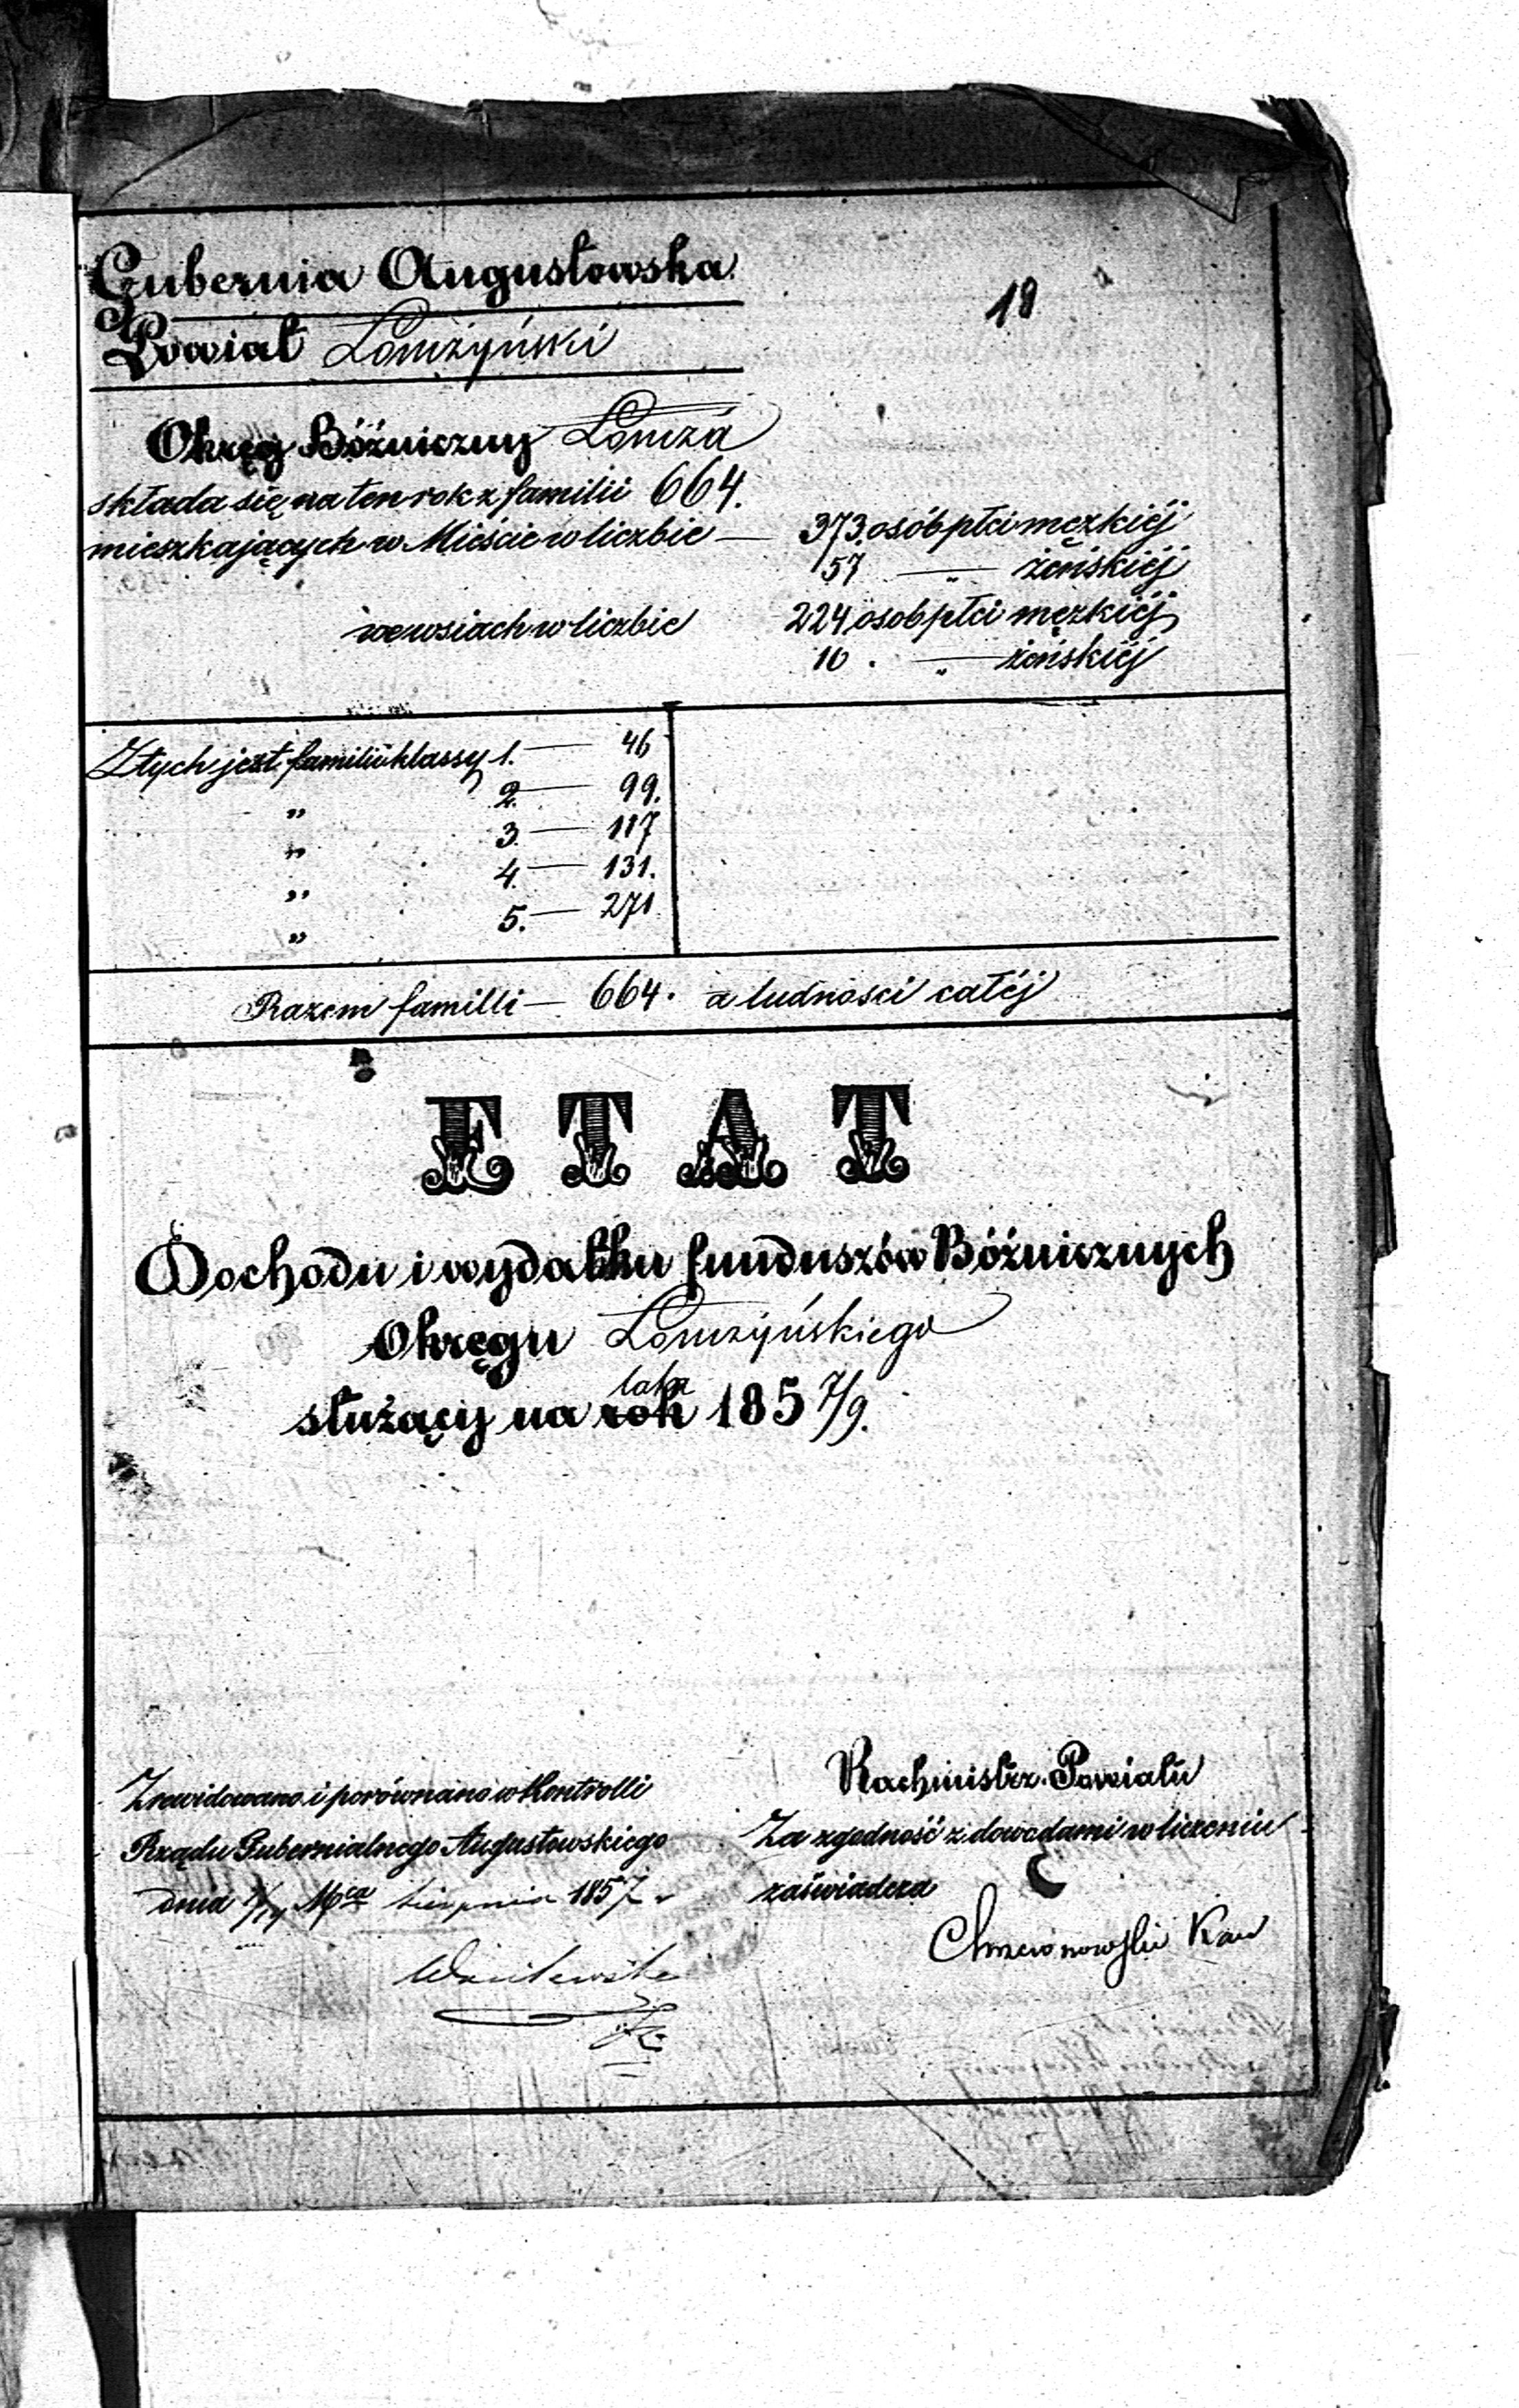 18
Gubernia Augustowska
Powiat Łomżyński
Okręg Bóźniczny Łomża
składa się na ten rok z familii 664.
mieszkających w Mieście w liczbie — 373. osób płci męzkiéj
57 — „ — żeńskiéj
we wsiach w liczbie 224 osob płci męzkiéj
10 . — „ — żeńskiéj
Z tych jest familii klassy 1. — 46
„ 2. — 99.
„ 3. — 117
„ 4. — 131.
„ 5. — 271
Razem familli — 664. a ludnosci całéj
ETAT
Dochodu i wydatku funduszów Bóźnicznych
Okręgu Łomzyńskiego
lata
służący na rok 185 7/9.
Zrewidowano i porównano w Kontrolli
Rządu Gubernialnego Augustowskiego
dnia Mca Sierpnia 1857 r
Rachmistrz Powiatu
Za zgodność z dowodami w liczeniu
zaświadcza